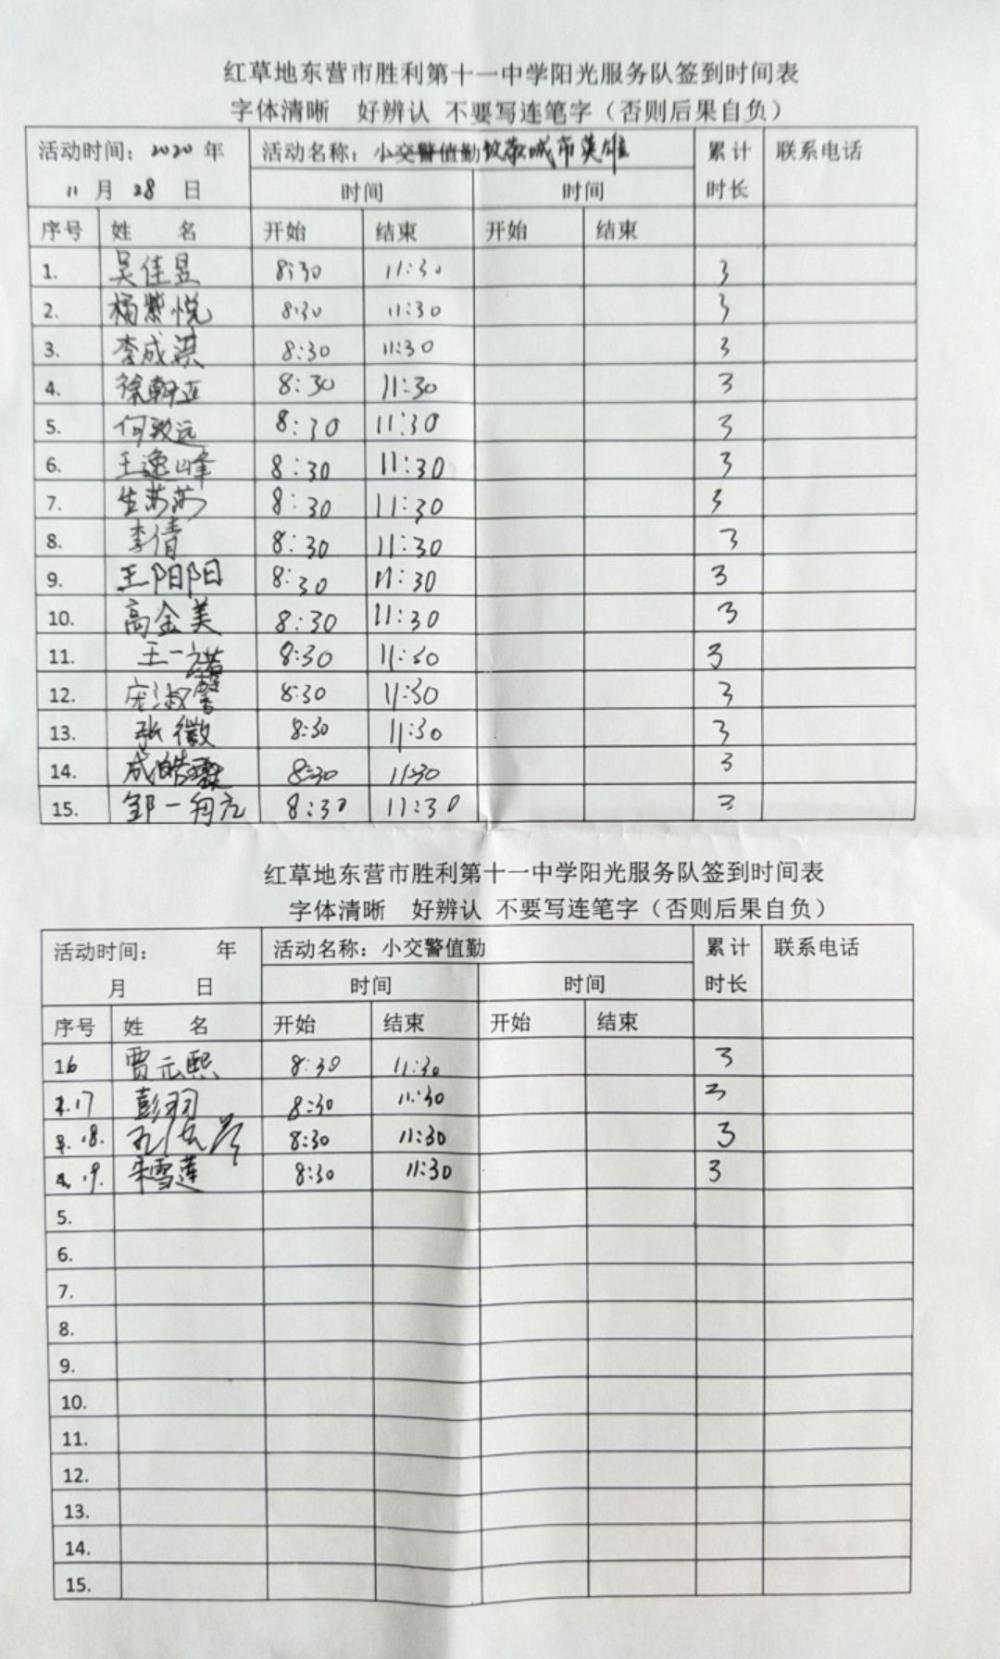 红草地东营市胜利第十一中学阳光服务队签到时间表
字体清晰 好辨认 不要写连笔字（否则后果自负）
活动时间：2020 年 活动名称：小交警值勤 致敬城市英雄 累计 联系电话
11 月 28 日 时间 时间 时长
序号 姓 名 开始 结束 开始 结束
1. 吴佳昱 8:30 11:30 3
2. 杨紫悦 8:30 11:30 3
3. 李成淇 8:30 11:30 3
4. 徐朝正 8:30 11:30 3
5. 何致远 8:30 11:30 3
6. 王逸峰 8:30 11:30 3
7. 生莎莎 8:30 11:30 3
8. 李倩 8:30 11:30 3
9. 王阳阳 8:30 11:30 3
10. 高金美 8:30 11:30 3
11. 王一诺 8:30 11:30 3
12. 庞淑馨 8:30 11:30 3
13. 张徵 8:30 11:30 3
14. 成皓 8:30 11:30 3
15. 邹一 8:30 11:30 3
红草地东营市胜利第十一中学阳光服务队签到时间表
字体清晰 好辨认 不要写连笔字（否则后果自负）
活动时间： 年 活动名称：小交警值勤 累计 联系电话
月 日 时间 时间 时长
序号 姓 名 开始 结束 开始 结束
16 贾元熙 8:30 11:30 3
2.17 彭羽 8:30 11:30 3
3.18. 孔 8:30 11:30 3
4.19. 朱雪莲 8:30 11:30 3
5.
6.
7.
8.
9.
10.
11.
12.
13.
14.
15.